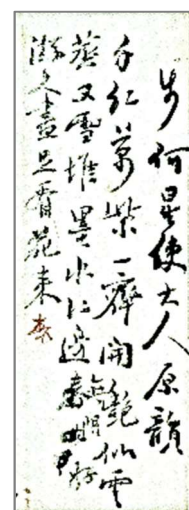 步何星使大人原韻
千红萬紫一齊開艷似雲
蒸又雪堆墨水江邊春好
游人盡是看花来